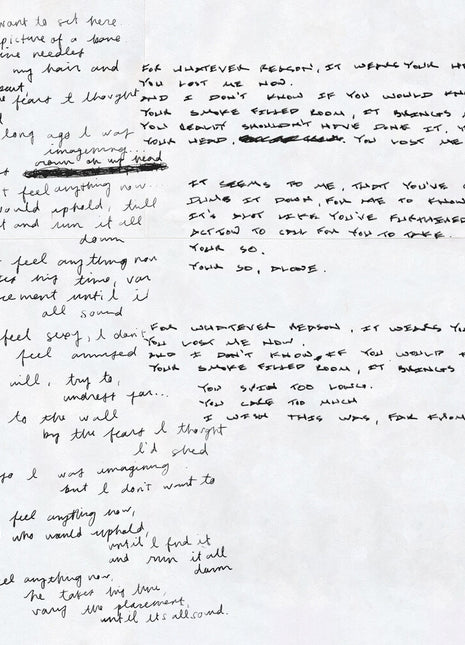 want to sit here.
picture of a bone.
needles
my hair and
fears I thought
long ago I was
imagining...
feel anything now...
would uphold, till
and run it all
down
feel anything now
my time, vary
placement until it
all sound
feel sexy, I don't
feel amused
will, try to,
undress far...
to the wall
by the fears I thought
I'd shed
ago I was imagining.
but I don't want to
feel anything now,
who would uphold,
until I find it
and run it all
down
feel anything now.
he takes my time,
vary the placement,
until its all sound.
FOR WHATEVER REASON, IT WEARS YOUR
YOU LOST ME NOW.
AND I DON'T KNOW IF YOU WOULD
YOUR SMOKE FILLED ROOM, IT BRINGS
YOU REALLY SHOULDN'T HAVE DONE IT,
YOUR HEAD, YOU LOST ME
IT SEEMS TO ME, THAT YOU'VE
DUMB IT DOWN, FOR ME TO KNOW
IT'S LIKE YOU'VE FURNISHED
ACTION TO CALL FOR YOU TO TAKE.
YOUR SO.
YOUR SO, ALONE.
FOR WHATEVER REASON, IT WEARS
YOU LOST ME NOW.
AND I DON'T KNOW, IF YOU WOULD
YOUR SMOKE FILLED ROOM, IT BRINGS
YOU TOO LONG.
YOU CARE TOO MUCH
I WISH THIS WAS, FAR FROM